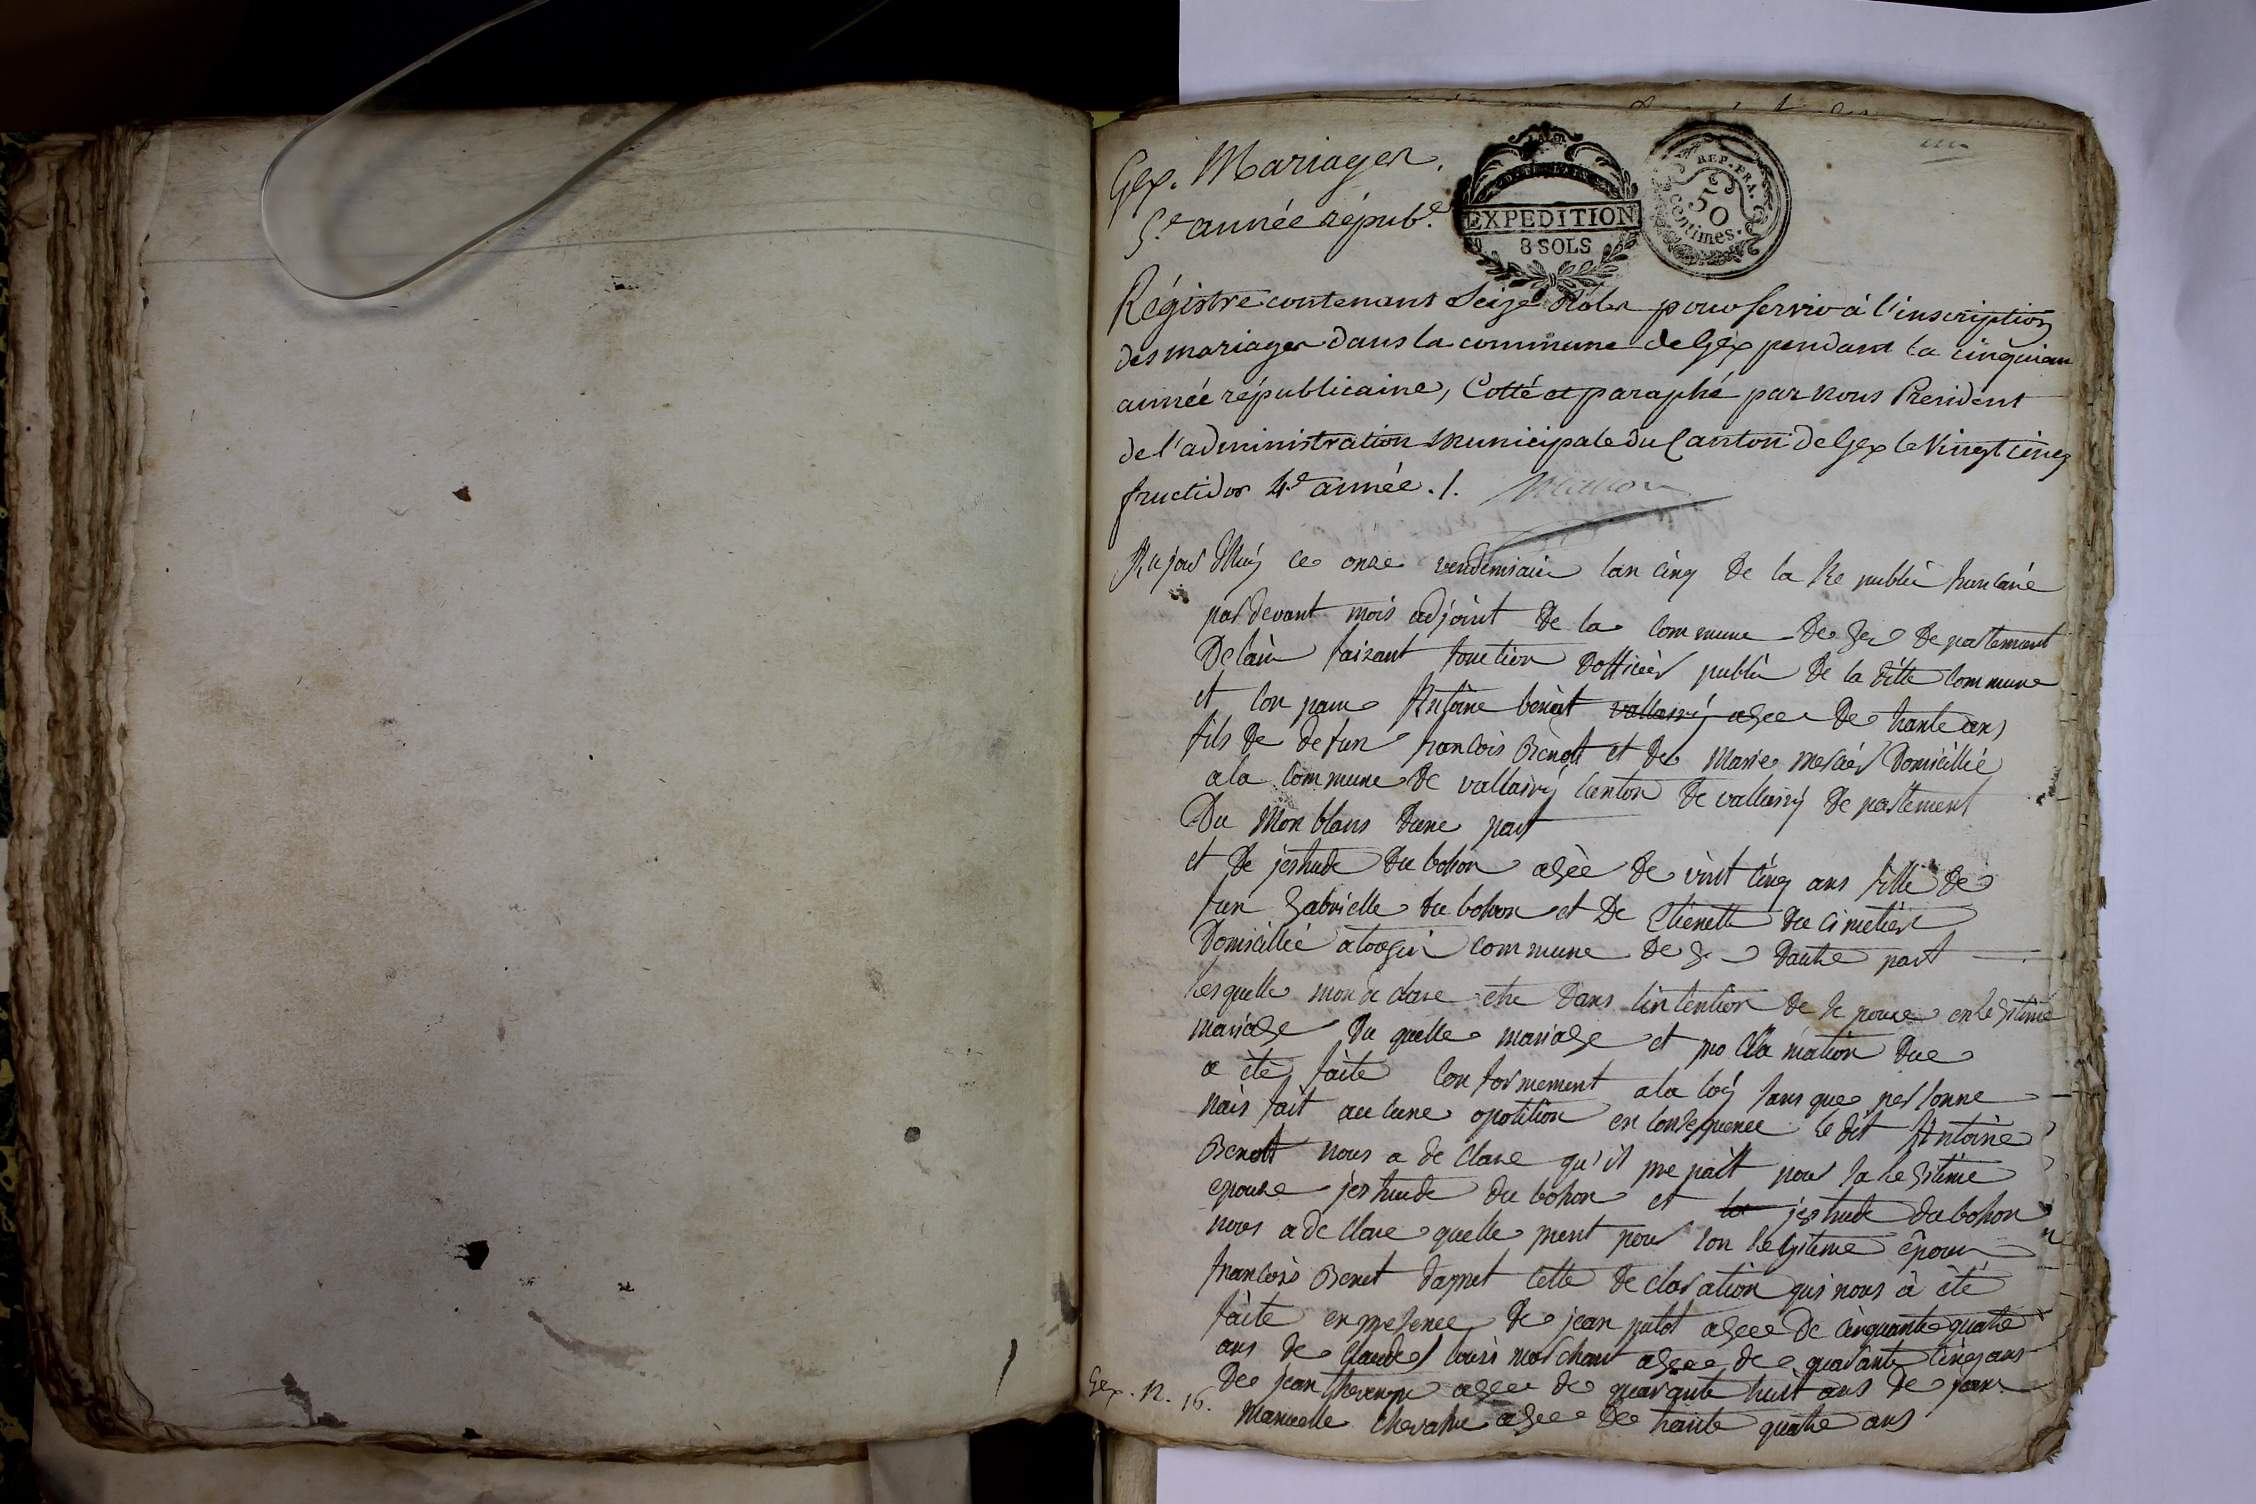 Gex. Mariages.
5.e année répub.e
LA LOI
EXPEDITION
8 SOLS
REP. FRA.
50
Centimes.
Régistre contenant Seize Rôles pour servir à l'inscription
des mariages dans la commune de Gex pendant la cinquiem
année républicaine, Cotté et paraphé par nous President
de l'administration Municipale du Canton de Gex le Vingt cinq
fructidor 4.e année ./.
Aujour dhuÿ ce onze vendemiair lan cinq de la Re publi francaise
par devant mois adjoint de la Commune de Gex de partement
De lain faisant fonction dofficiér publi de la ditte Commune
et Con paru Antoine benoit vallairÿ agee de trante ans
fils de de fun francois Benoit et de Marie merciér Domicillié
a la Commune de vallairÿ Canton de vallairÿ de partement
Du Mon blans dune part
et de jertrude du bohon agèe de vint cinq ans fille de
fun Gabrielle du bohon et De Etienette du cimetier
Domicillié a commune de Gex dautre part
les quelle mon de clare etre dans lintention de se pouse en legitime
mariage du quelle mariage et pro cla mation due
a èté faite Con formement a la loÿ sans que personne
nais fait au cune opotition en consequence le dit Antoine
Benoit nous a de clare qu'il pre pait pour sa le gitime
epouse jertrude du bohon et la jertrude du bohon
nous a de clare quelle prent pour son le gitime èpoux
francois Benet dapret cette de claration qui nous à été
faite en presence de jean patot agee de cinquante quatre
ans de Claude louis marchant agee de quarante cinq ans
De jean agee de quarante huit ans de
Manuelle Chevalie agee de trante quatre ans
Gex. n. 16.